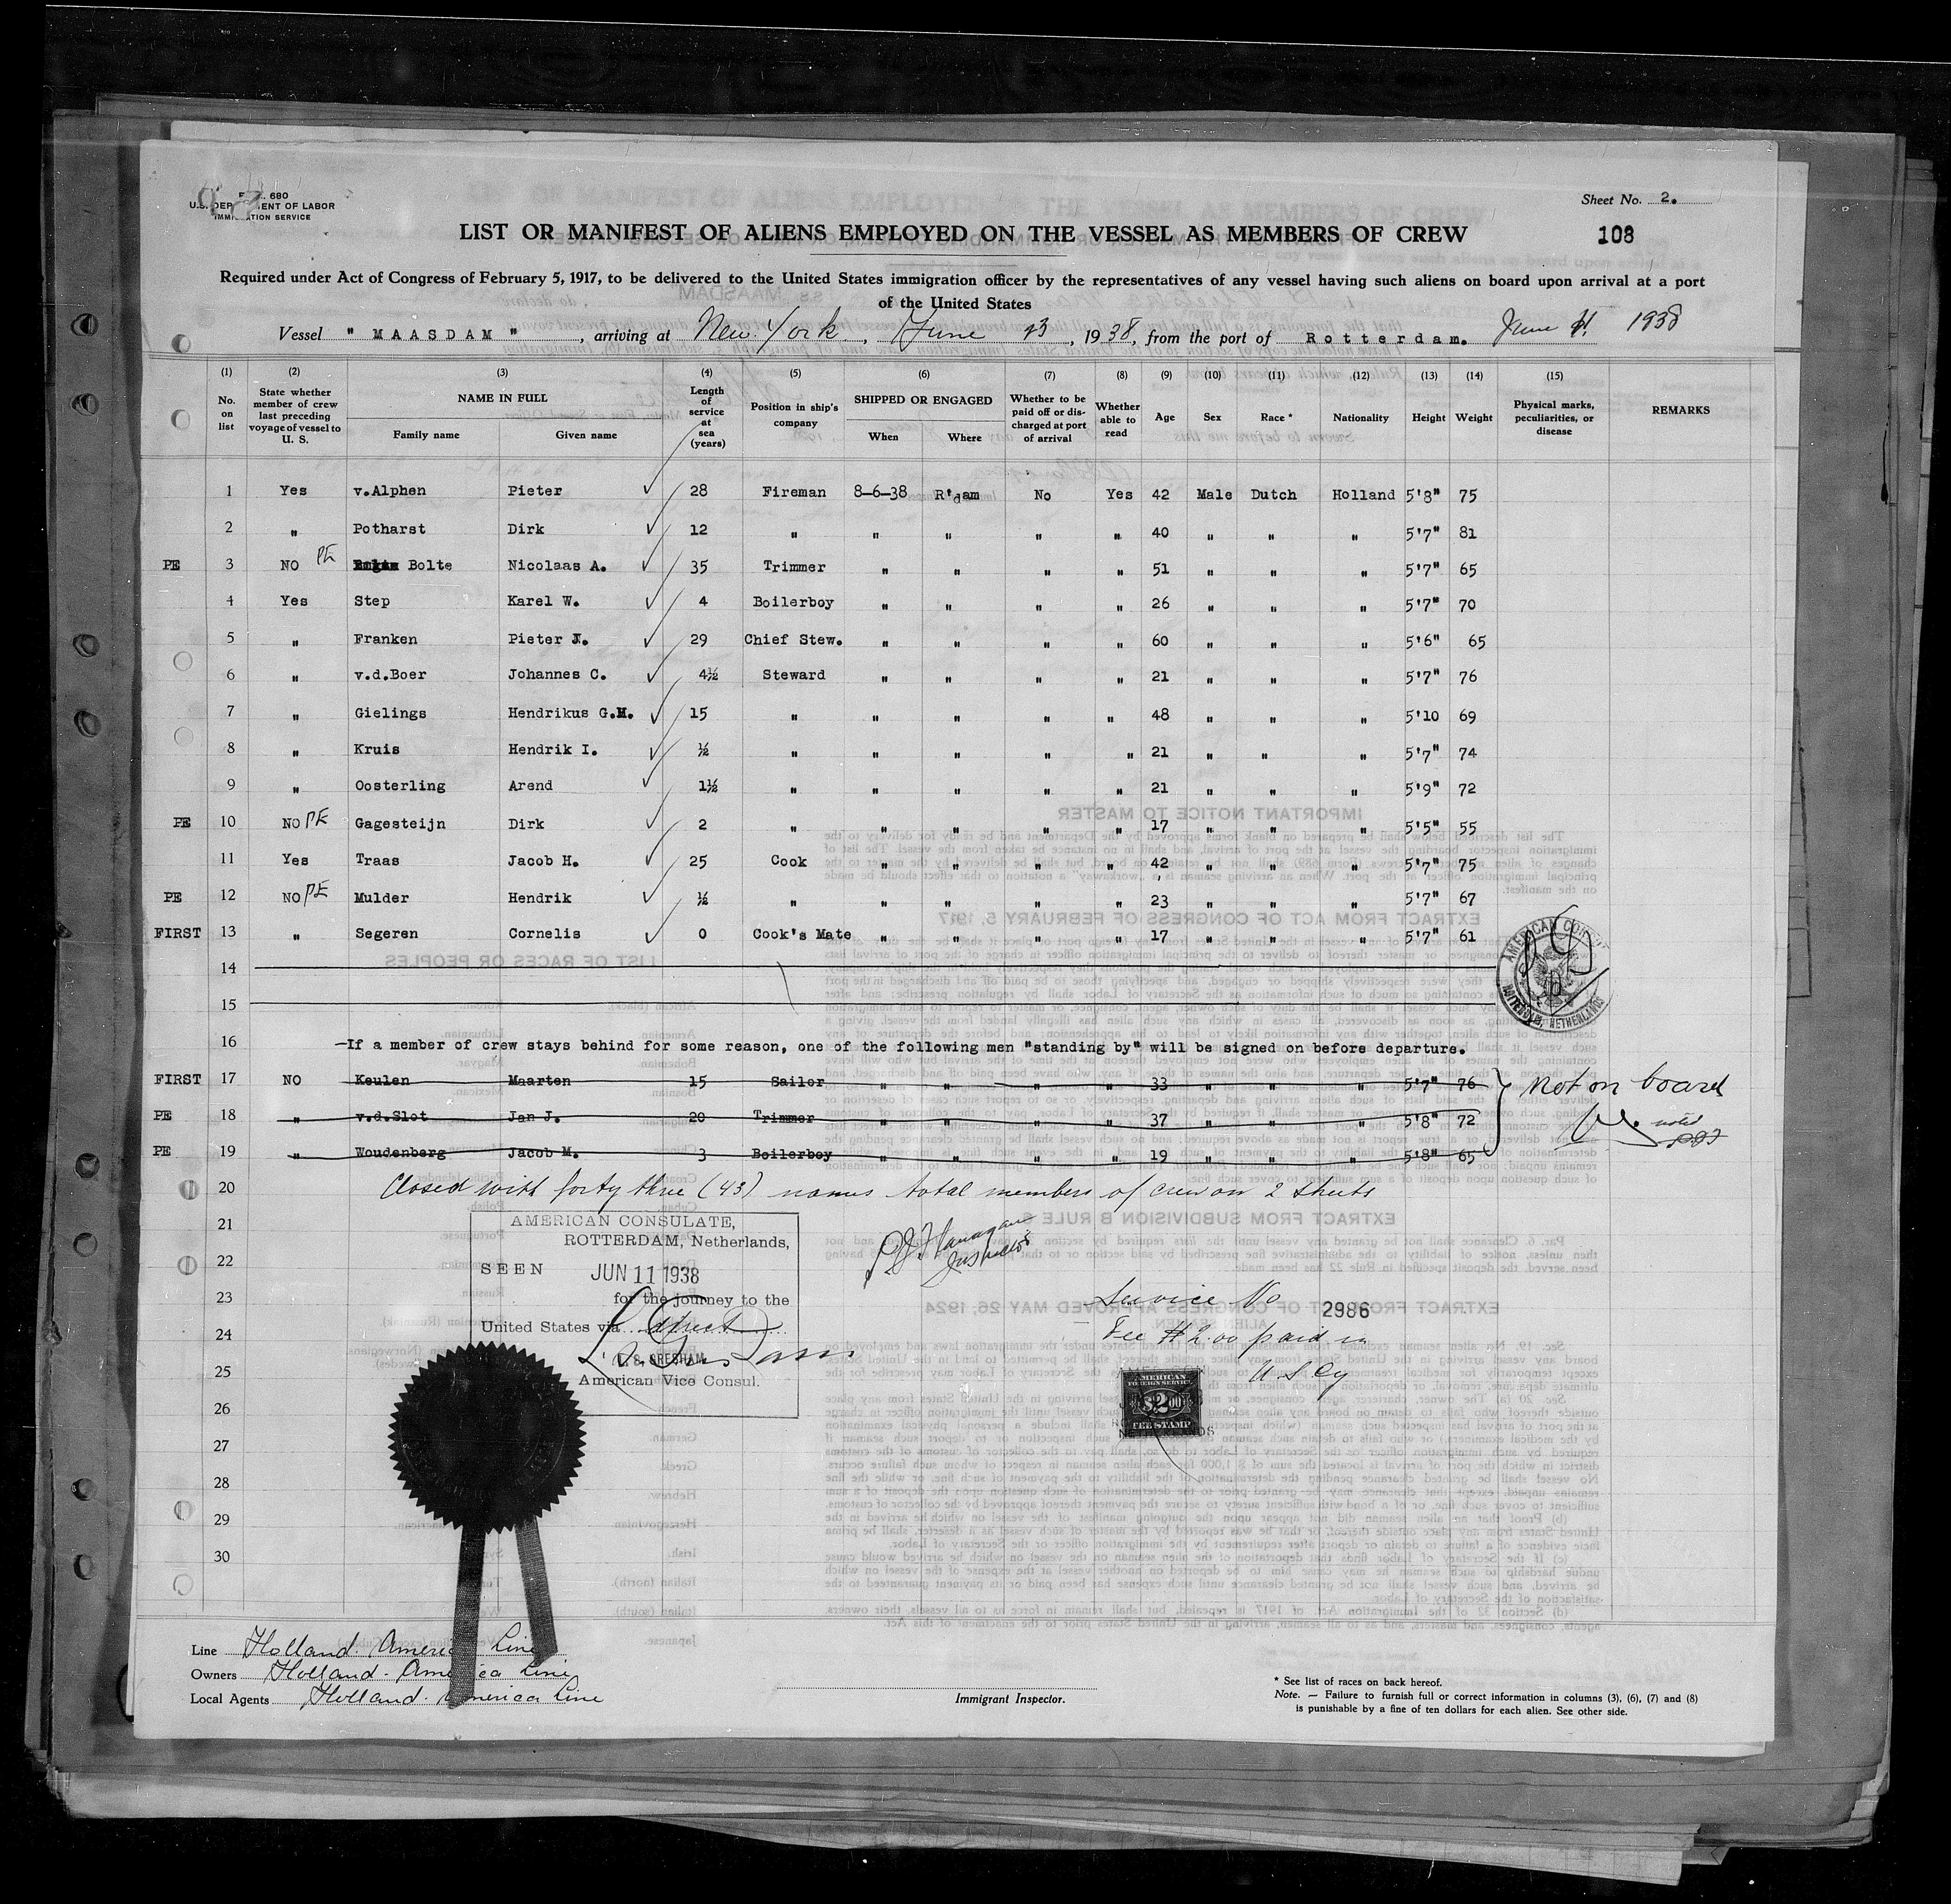 FORM 680
U.S. DEPARTMENT OF LABOR
IMMIGRATION SERVICE
Sheet No. 2.
LIST OR MANIFEST OF ALIENS EMPLOYED ON THE VESSEL AS MEMBERS OF CREW
108
Required under Act of Congress of February 5, 1917, to be delivered to the United States immigration officer by the representatives of any vessel having such aliens on board upon arrival at a port
of the United States
Vessel "MAASDAM", arriving at New York, June 23, 1938, from the port of Rotterdam. June 11 1938
(1) (2) (3) (4) (5) (6) (7) (8) (9) (10) (11) (12) (13) (14) (15)
No. on list | State whether member of crew last preceding voyage of vessel to U. S. | NAME IN FULL Family name Given name | Length of service at sea (years) | Position in ship's company | SHIPPED OR ENGAGED When Where | Whether to be paid off or discharged at port of arrival | Whether able to read | Age | Sex | Race * | Nationality | Height | Weight | Physical marks, peculiarities, or disease | REMARKS
1 Yes v.Alphen Pieter 28 Fireman 8-6-38 R'dam No Yes 42 Male Dutch Holland 5'8" 75
2 " Potharst Dirk 12 " " " " " 40 " " " 5'7" 81
PE 3 NO PE Bolte Nicolaas A. 35 Trimmer " " " " 51 " " " 5'7" 65
4 Yes Step Karel W. 4 Boilerboy " " " " 26 " " " 5'7" 70
5 " Franken Pieter J. 29 Chief Stew. " " " " 60 " " " 5'6" 65
6 " v.d.Boer Johannes C. 4½ Steward " " " " 21 " " " 5'7" 76
7 " Gielings Hendrikus G.M. 15 " " " " " 48 " " " 5'10 69
8 " Kruis Hendrik I. ½ " " " " " 21 " " " 5'7" 74
9 " Oosterling Arend 1½ " " " " " 21 " " " 5'9" 72
PE 10 NO PE Gagesteijn Dirk 2 " " " " " 17 " " " 5'5" 55
11 Yes Traas Jacob H. 25 Cook " " " " 42 " " " 5'7" 75
PE 12 NO PE Mulder Hendrik ½ " " " " " 23 " " " 5'7" 67
FIRST 13 " Segeren Cornelis 0 Cook's Mate " " " " 17 " " " 5'7" 61
14
15
16 -If a member of crew stays behind for some reason, one of the following men "standing by" will be signed on before departure.
FIRST 17 NO Keulen Maarten 15 Sailor " " " " 33 " " " 5'7" 76 Not on board
PE 18 " v.d.Slot Jan J. 20 Trimmer " " " " 37 " " " 5'8" 72 noted
PE 19 " Woudenberg Jacob M. 3 Boilerboy " " " " 19 " " " 5'8" 65
20 Closed with forty three (43) names total members of crew on 2 sheets
21
22
23
24
25
26
27
28
29
30
AMERICAN CONSULATE,
ROTTERDAM, Netherlands,
SEEN JUN 11 1938
for the journey to the
United States via direct
L. S. GRESHAM
American Vice Consul.
P.J. Flanagan
Inspector
Service No 2986
Fee $2.00 paid in
U S Cy
AMERICAN
FOREIGN SERVICE
$2.00
FEE STAMP
NETHERLANDS
AMERICAN CONSULATE
ROTTERDAM, NETHERLANDS
Line Holland America Line
Owners Holland-America Line
Local Agents Holland-America Line
Immigrant Inspector.
* See list of races on back hereof.
Note. — Failure to furnish full or correct information in columns (3), (6), (7) and (8)
is punishable by a fine of ten dollars for each alien. See other side.